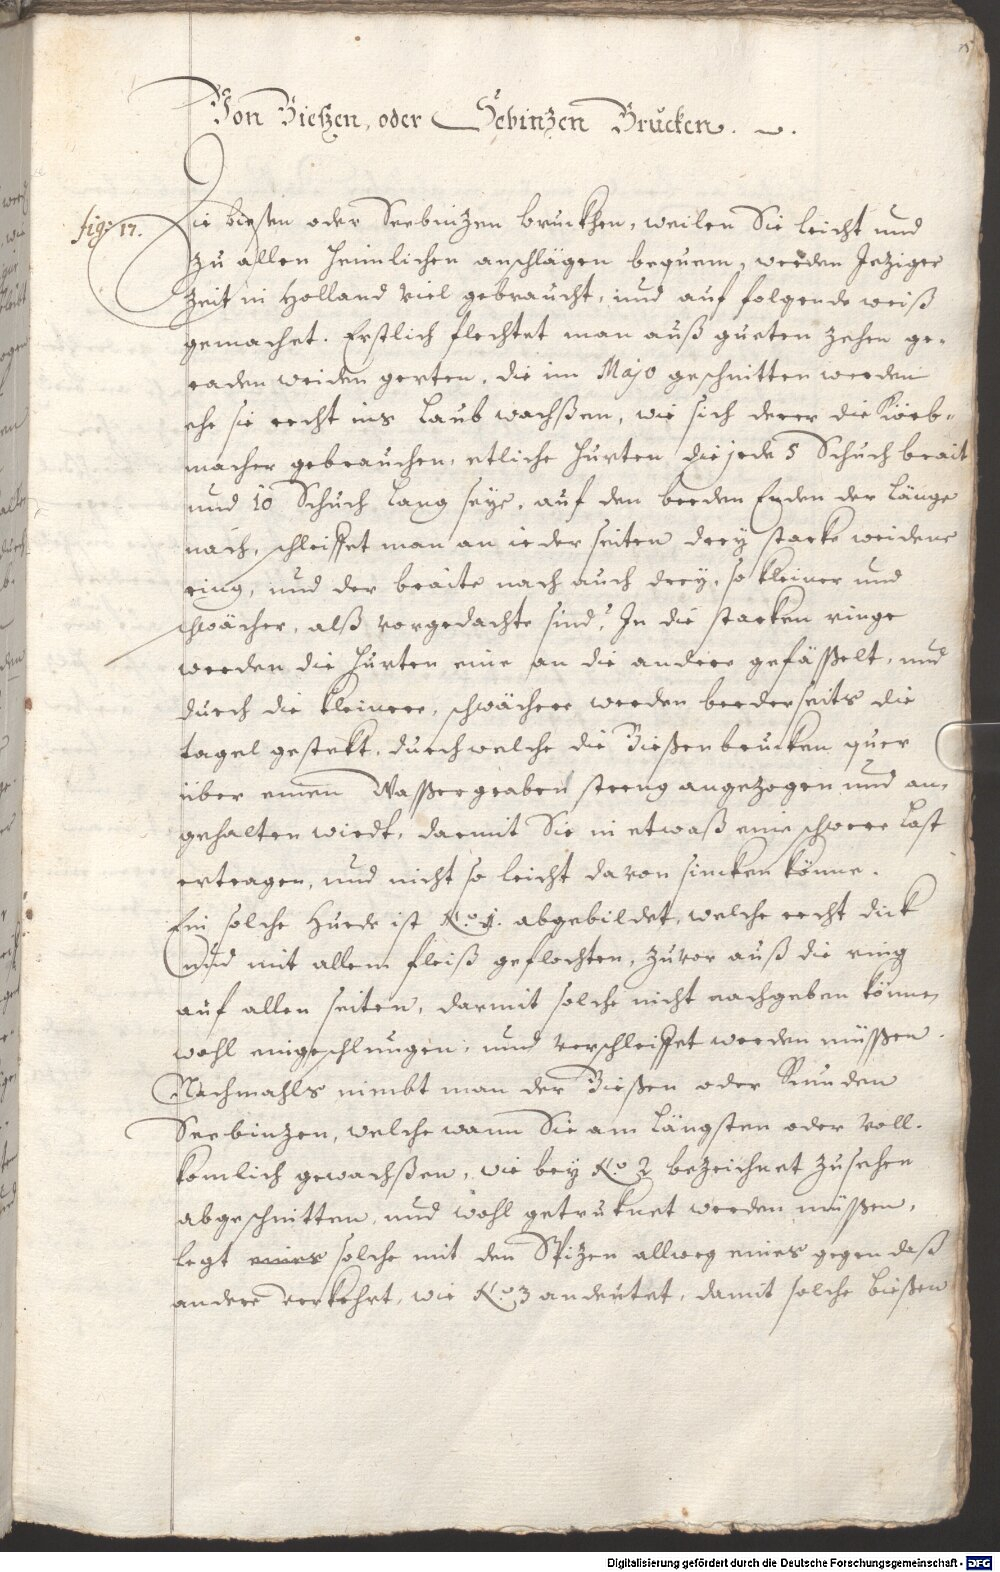 Von Bießen, oder Sebinzen Brucken.
fig: 17.
Die bießen oder Seebinzen bruckhen, weilen Sie leicht und
zu allen heimlichen anschlägen bequem, werden Jeziger
Zeit in Holland viel gebraucht, und auf folgende weiß
gemachet. Erstlich flechtet man auß gueten zehen ge-
raden weiden gerten, die im Majo geschnitten werden
ehe sie recht ins Laub wachßen, wie sich derer die Körb-
macher gebrauchen, etliche Hurten die jede 5 Schuch brait
und 10 Schuch lang seye, auf den beeden Enden der Länge
nach, schleiffet man an ieder seiten drey starke weidene
ring, und der braite nach auch drey, so kleiner und
schwächer, alß vorgedachte sind; In die starken ringe
werden die Hurten eine an die andere gefässelt, und
durch die kleinere, schwächere werden beederseits die
tagel gestekt, durch welche die Bießenbrucken quer
über einen Wassergraben streng angezogen und an-
gehalten wirdt, darmit Sie in etwaß eine schwere Last
ertragen, und nicht so leicht davon sincken könne.
Ein solche Hurde ist No. 1. abgebildet, welche recht dick
und mit allem fleiß geflochten, zuvor auß die ring
auf allen seiten, darmit solche nicht nachgeben können
wohl eingeschlungen, und verschleiffet werden müssen.
Nachmahls nimbt man der Bießen oder Runden
Seebinzen, welche wann Sie am Längsten oder voll-
komlich gewachßen, wie bey No. 2 bezeichnet zusehen
abgeschnitten, und wohl getruknet werden müssen,
legt eines solche mit den Spizen allweg eines gegen daß
andere verkehrt, wie No. 3 andeutet, damit solche bießen
Digitalisierung gefördert durch die Deutsche Forschungsgemeinschaft - DFG